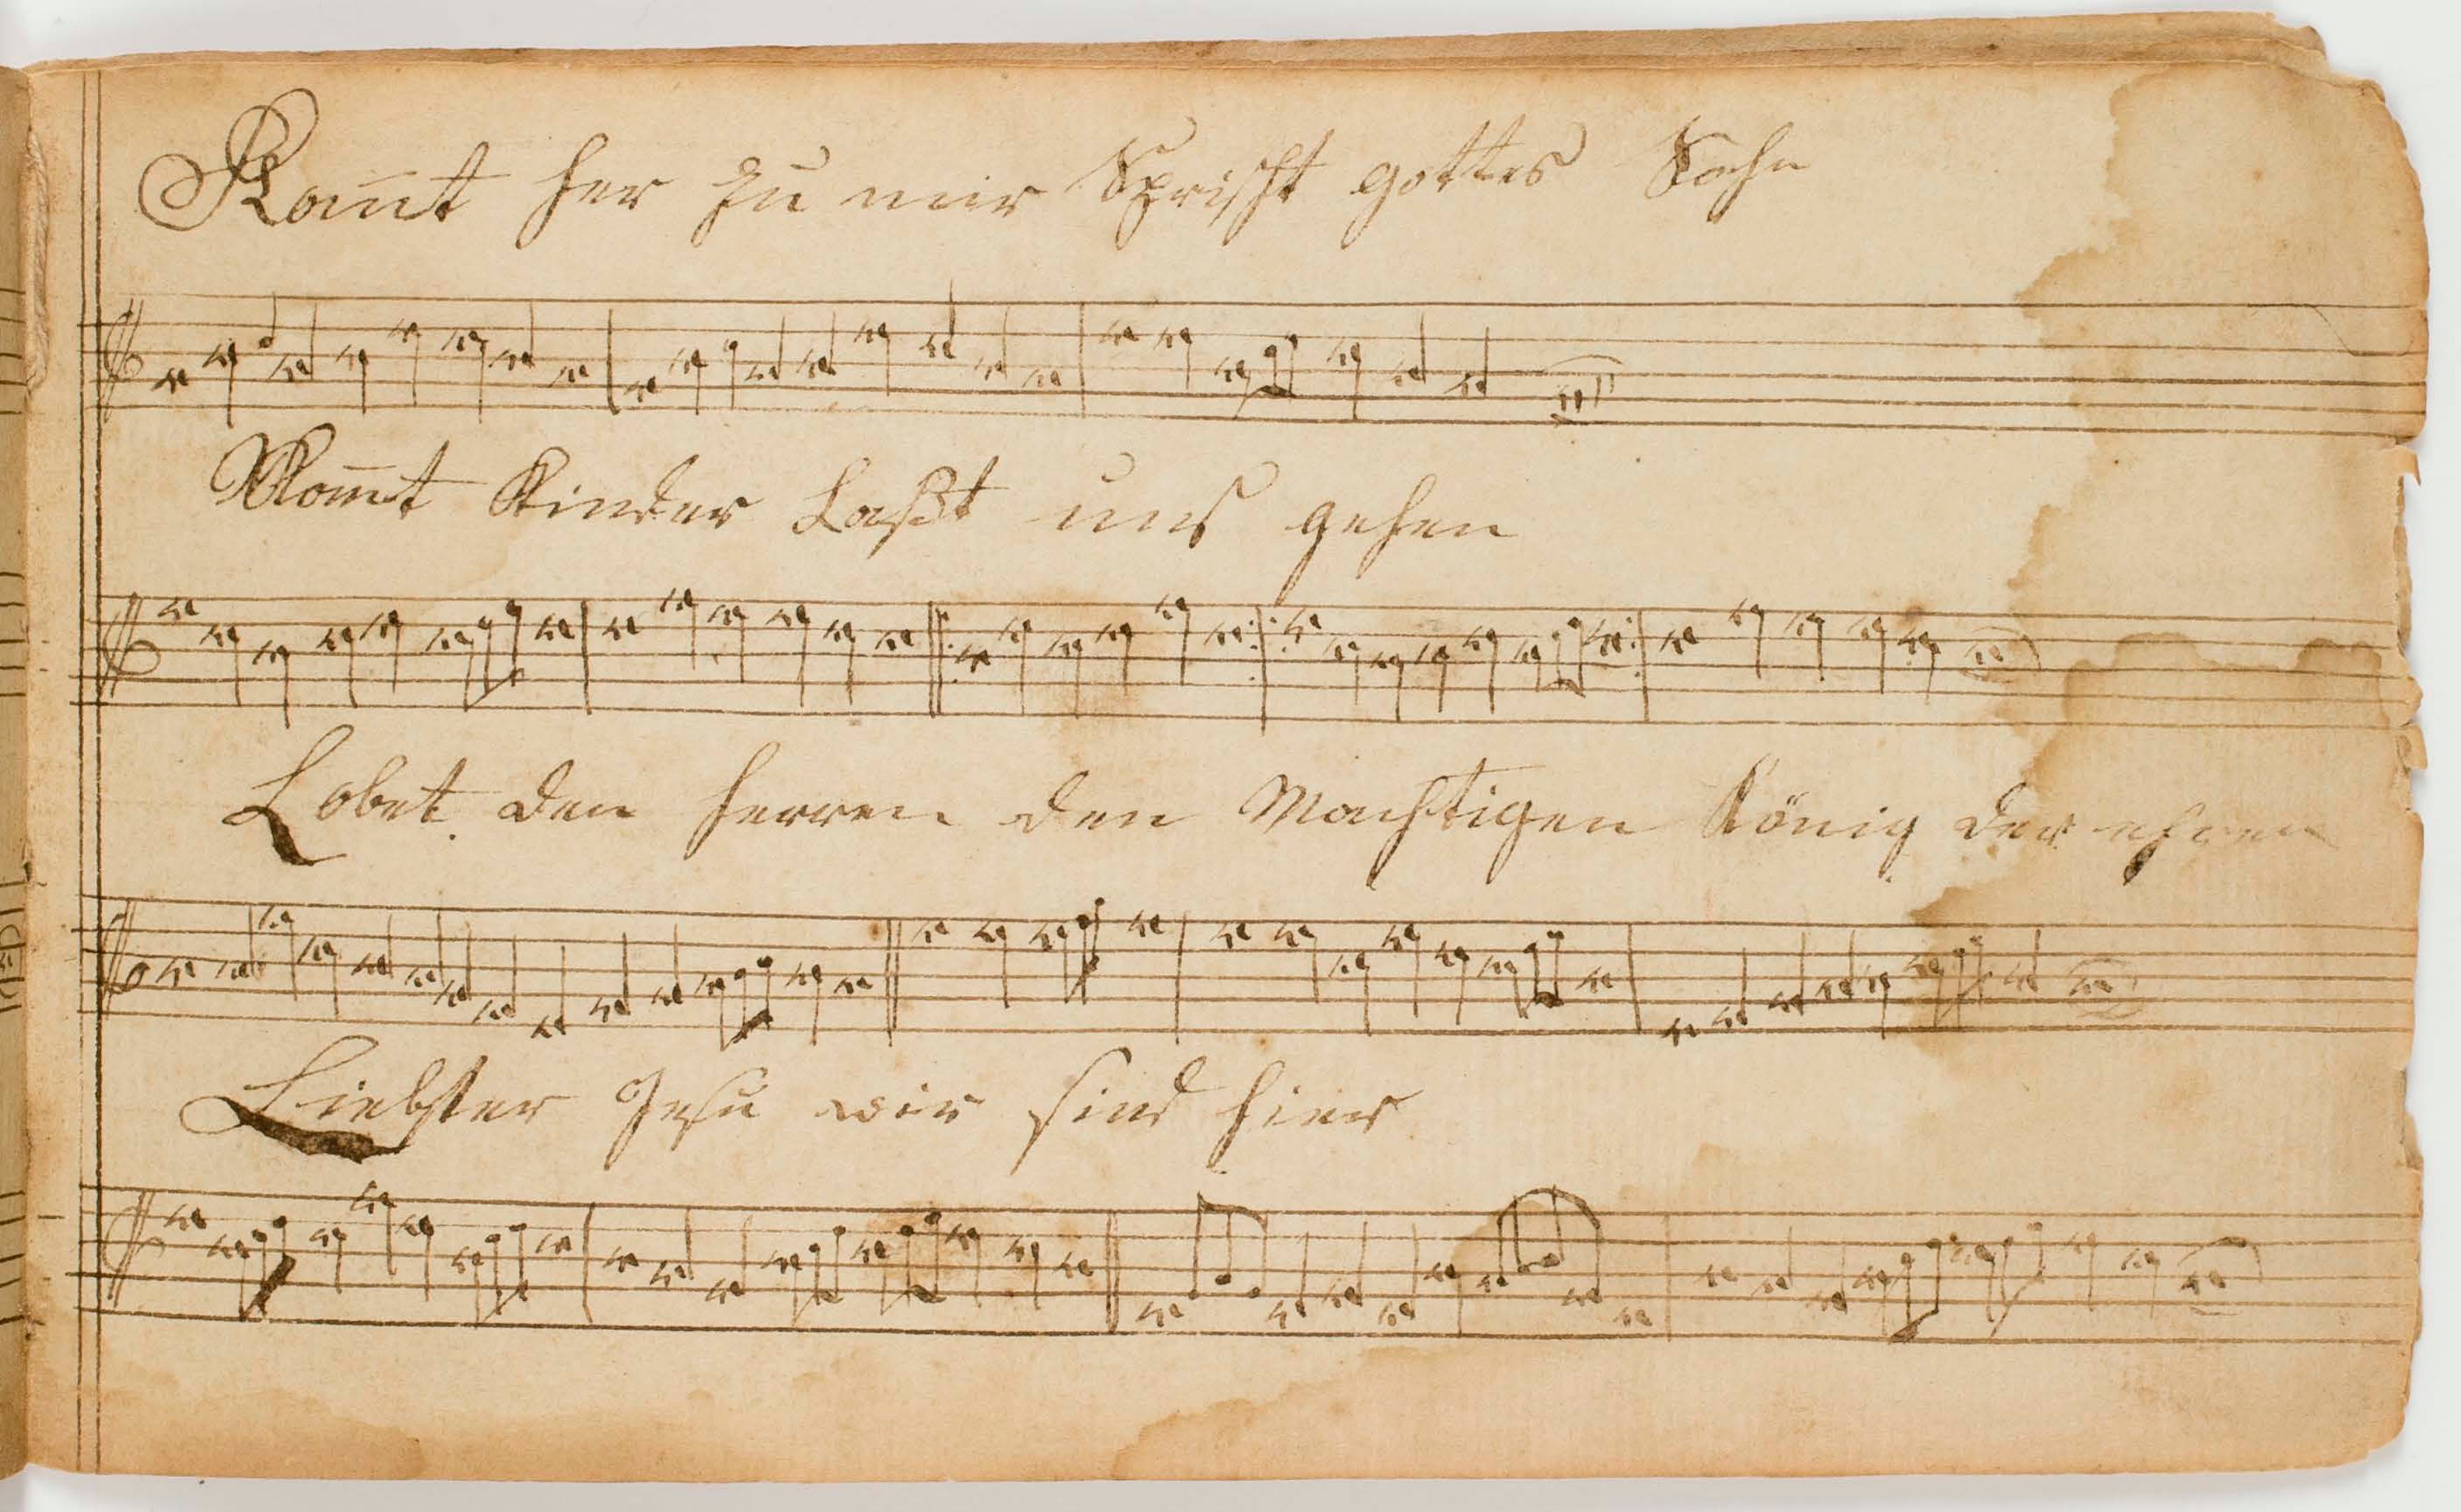 Kom̅t her zu mir Spricht gottes Sohn
Kom̅t Kinder Laßt uns gehen
Lobet den herren den Machtigen König der ehren
Liebster Jesu wir sind hier